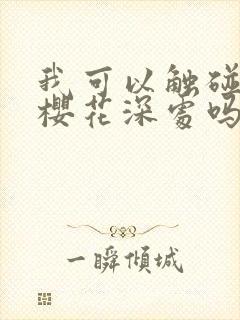 我可以触碰
樱花深处吗
一瞬倾城